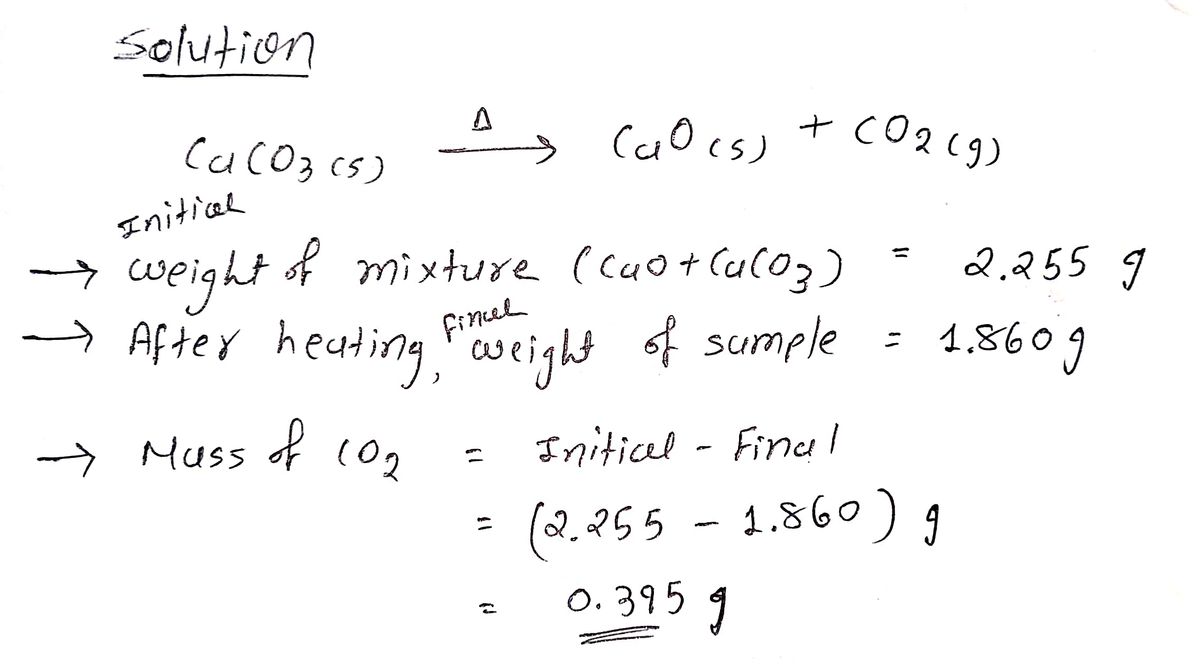 Solution
CaCO3 (s) Δ→ CaO (s) + CO2 (g)
Initial
→ weight of mixture (CaO + CaCO3) = 2.255 g
→ After heating, final weight of sample = 1.860 g
→ Mass of CO2 = Initial - Final
= (2.255 - 1.860) g
= 0.395 g